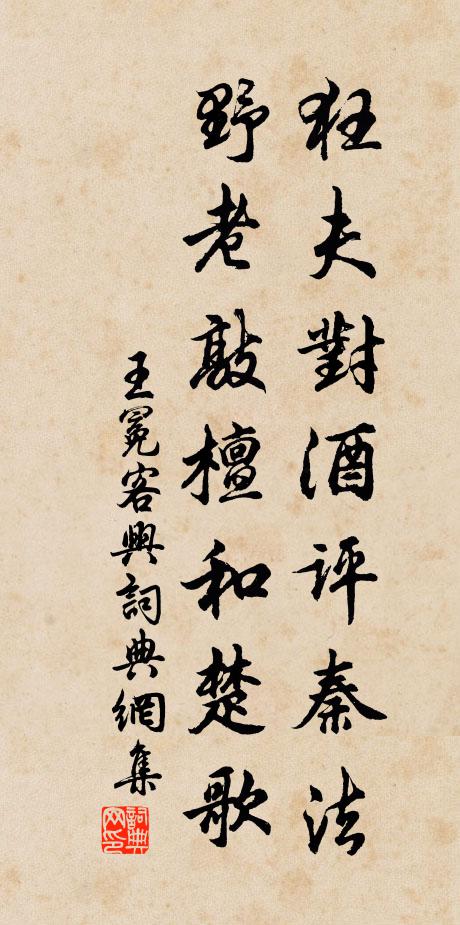 狂夫對酒評秦法
野老敲檀和楚歌
王冕客興詞典網集
詞典网印